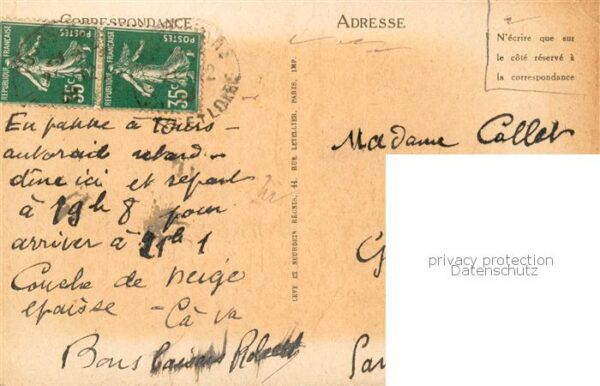 CORRESPONDANCE
ADRESSE
N'écrire que sur
le côté réservé à
la correspondance
REPUBLIQUE FRANÇAISE
POSTES
35c
REPUBLIQUE FRANÇAISE
POSTES
35c
ET LOIRE
En panne à Tours –
autorail retard –
dîne ici et repart
à 19h 8 pour
arriver à 21h 1
Couche de neige
épaisse – Cà va
Bons baisers Robert
LEVY ET NEURDEIN RÉUNIS, 44, RUE LETELLIER, PARIS, IMP.
Madame Collet
privacy protection
Datenschutz